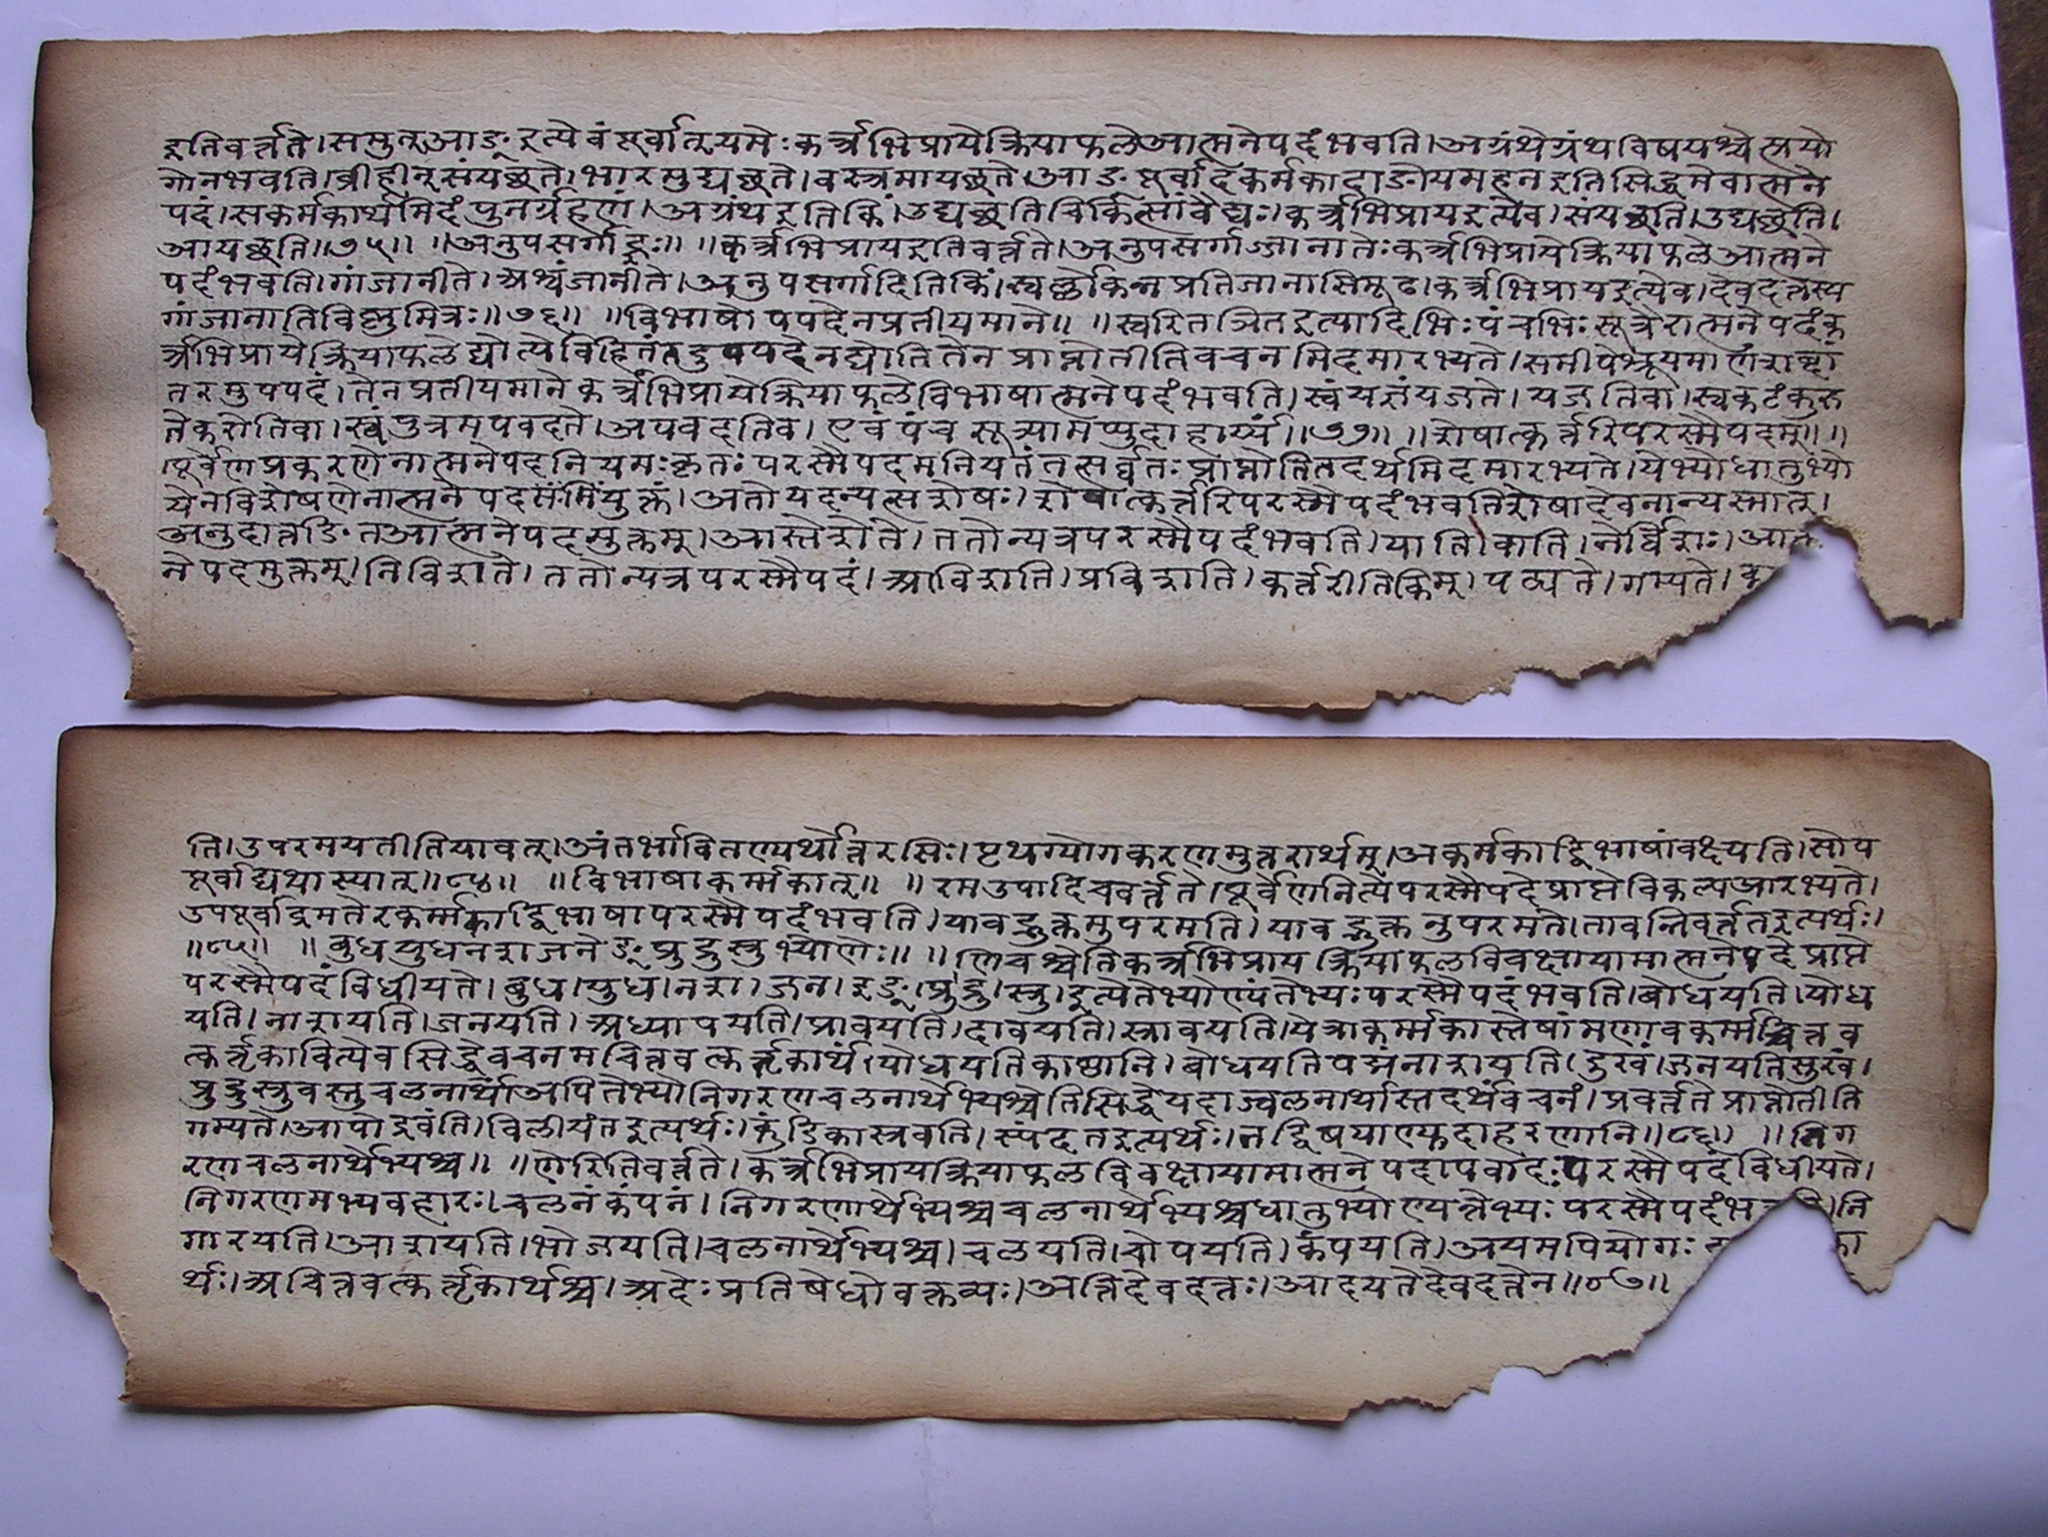 इतिवर्त्तते।समुत्आङ्इत्येवंपूर्वात्यमेःकर्त्रभिप्रायेक्रियाफलेआत्मनेपदंभवति।अग्रंथेग्रंथविषयश्चेत्प्रयो
गोनभवति।व्रीहीन्संयछते।भारमुद्यछते।वस्त्रमायछते।आङःपूर्वादकर्मकादाङोयमहनइतिसिद्धमेवात्मने
पदं।सकर्मकार्थमिदंपुनर्ग्रहणं।अग्रंथइतिकिं।उद्यछतिचिकित्सांवैद्यः।कर्त्रभिप्रायइत्येव।संयछति।उद्यछति।
आयछति॥७५॥ ॥अनुपसर्गाज्ञः॥ ॥कर्त्रभिप्रायइतिवर्त्तते।अनुपसर्गाज्जानातेःकर्त्रभिप्रायेक्रियाफलेआत्मने
पदंभवति।गांजानीते।अश्वंजानीते।अनुपसर्गादितिकिं।स्वर्ल्लोकंनप्रतिजानासिमूढ।कर्त्रभिप्रायइत्येव।देवदत्तस्य
गांजानातिविष्णुमित्रः॥७६॥ ॥विभाषोपपदेनप्रतीयमाने॥ ॥स्वरितञितइत्यादिभिःपंचभिःसूत्रैरात्मनेपदंक
र्त्रभिप्रायेक्रियाफलेद्योत्येविहितंतदुपपदेनद्योतितेनप्राप्नोतीतिवचनमिदमारभ्यते।समीपेश्रूयमाणंशब्दां
तरमुपपदं।तेनप्रतीयमानेकर्त्रभिप्रायेक्रियाफलेविभाषात्मनेपदंभवति।स्वंयज्ञंयजते।यजतिवा।स्वंकटंकुरु
तेकरोतिवा।स्वंपुत्रमपवदते।अपवदतिवा।एवंपंचसूत्र्यामप्युदाहार्य्यं॥७७॥ ॥शेषात्कर्त्तरिपरस्मैपदम्॥॥
।पूर्वेणप्रकरणेनात्मनेपदनियमःकृतःपरस्मैपदमनियतंतत्सर्व्वतःप्राप्नोतितदर्थमिदमारभ्यते।येभ्योधातुभ्यो
येनविशेषणेनात्मनेपदमुक्तं।अतोयदन्यत्सशेषः।शेषात्कर्त्तरिपरस्मैपदंभवतिशेषादेवनान्यस्मात्।
अनुदात्तङितआत्मनेपदमुक्तम्।आस्तेशेते।ततोन्यत्रपरस्मैपदंभवति।याति।वाति।नेर्विशः।आत्म
नेपदमुक्तम्।निविशते।ततोन्यत्रपरस्मैपदं।आविशति।प्रविशति।कर्त्तरीतिकिम्।पठ्यते।गम्यते।क
ति।उपरमयतीतियावत्।अंतर्भावितण्यर्थोत्ररमिः।पृथग्योगकरणमुत्तरार्थम्।अकर्मकाद्विभाषांवक्ष्यति।सोप
पूर्वाद्यथास्यात्॥८४॥ ॥विभाषाकर्म्मकात्॥ ॥रमउपादितिचवर्त्तते।पूर्वेणनित्येपरस्मैपदेप्राप्तेविकल्पआरभ्यते।
उपपूर्वाद्रमतेरकर्म्मकाद्विभाषापरस्मैपदंभवति।यावद्भुक्तमुपरमति।यावद्भुक्तमुपरमते।तावन्निवर्त्ततइत्यर्थः।
॥८५॥ ॥बुधयुधनशजनेङ्प्रुद्रुस्रुभ्योणेः॥ ॥णिचश्चेतिकर्त्रभिप्रायक्रियाफलविवक्षायामात्मनेपदेप्राप्ते
परस्मैपदंविधीयते।बुध।युध।नश।जन।इङ्।प्रु।द्रु।स्रु।इत्येतेभ्योण्यंतेभ्यःपरस्मैपदंभवति।बोधयति।योध
यति।नाशयति।जनयति।अध्यापयति।प्रावयति।द्रावयति।स्रावयति।येत्राकर्म्मकास्तेषांमणावकर्म्मकाच्चित्तव
त्कर्तृकादित्येवसिद्धेवचनमचित्तवत्कर्तृकार्थं।योधयतिकाष्ठानि।बोधयतिपद्मंनाशयति।दुःखं।जनयतिसुखं।
प्रुद्रुस्रुवस्तुचलनार्थाअपितेभ्योनिगरणचलनार्थेभ्यश्चेतिसिद्धेयदाऽचलनार्थास्तदर्थंवचनं।प्रवर्त्ततेप्राप्नोतीति
गम्यते।आपोद्रवंति।विलीयंतइत्यर्थः।कुंडिकास्रवति।स्पंदतइत्यर्थः।तद्विषयाण्युदाहरणानि॥८६॥ ॥निग
रणचलनार्थेभ्यश्च॥ ॥णेरितिवर्त्तते।कर्त्रभिप्रायक्रियाफलविवक्षायामात्मनेपदापवादःपरस्मैपदंविधीयते।
निगरणमभ्यवहारः।चलनंकंपनं।निगरणार्थेभ्यश्चचलनार्थेभ्यश्चधातुभ्योण्यन्तेभ्यःपरस्मैपदंभवति।नि
गारयति।आशयति।भोजयति।चलनार्थेभ्यश्च।चलयति।चोपयति।कंपयति।अयमपियोगः का
र्थः।अचित्तवत्कर्तृकार्थश्च।अदेःप्रतिषेधोवक्तव्यः।अत्तिदेवदत्तः।आदयतेदेवदत्तेन॥८७॥